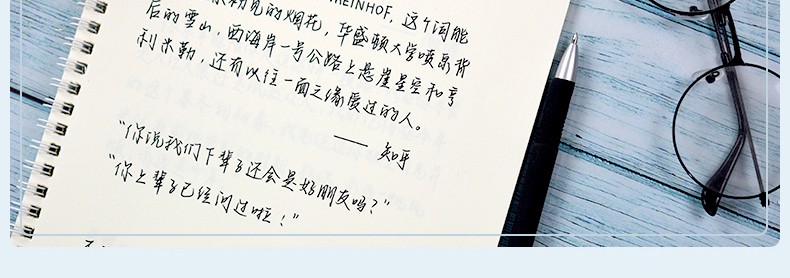 REINHOF, 这个词能
见的烟花, 华盛顿大学喷泉背
后的雪山, 西海岸一号公路上悬崖星空和亨
利米勒, 还有以往一面之缘爱过的人。
—— 知乎
"你说我们下辈子还会是好朋友吗?"
"你上辈子已经问过啦!"